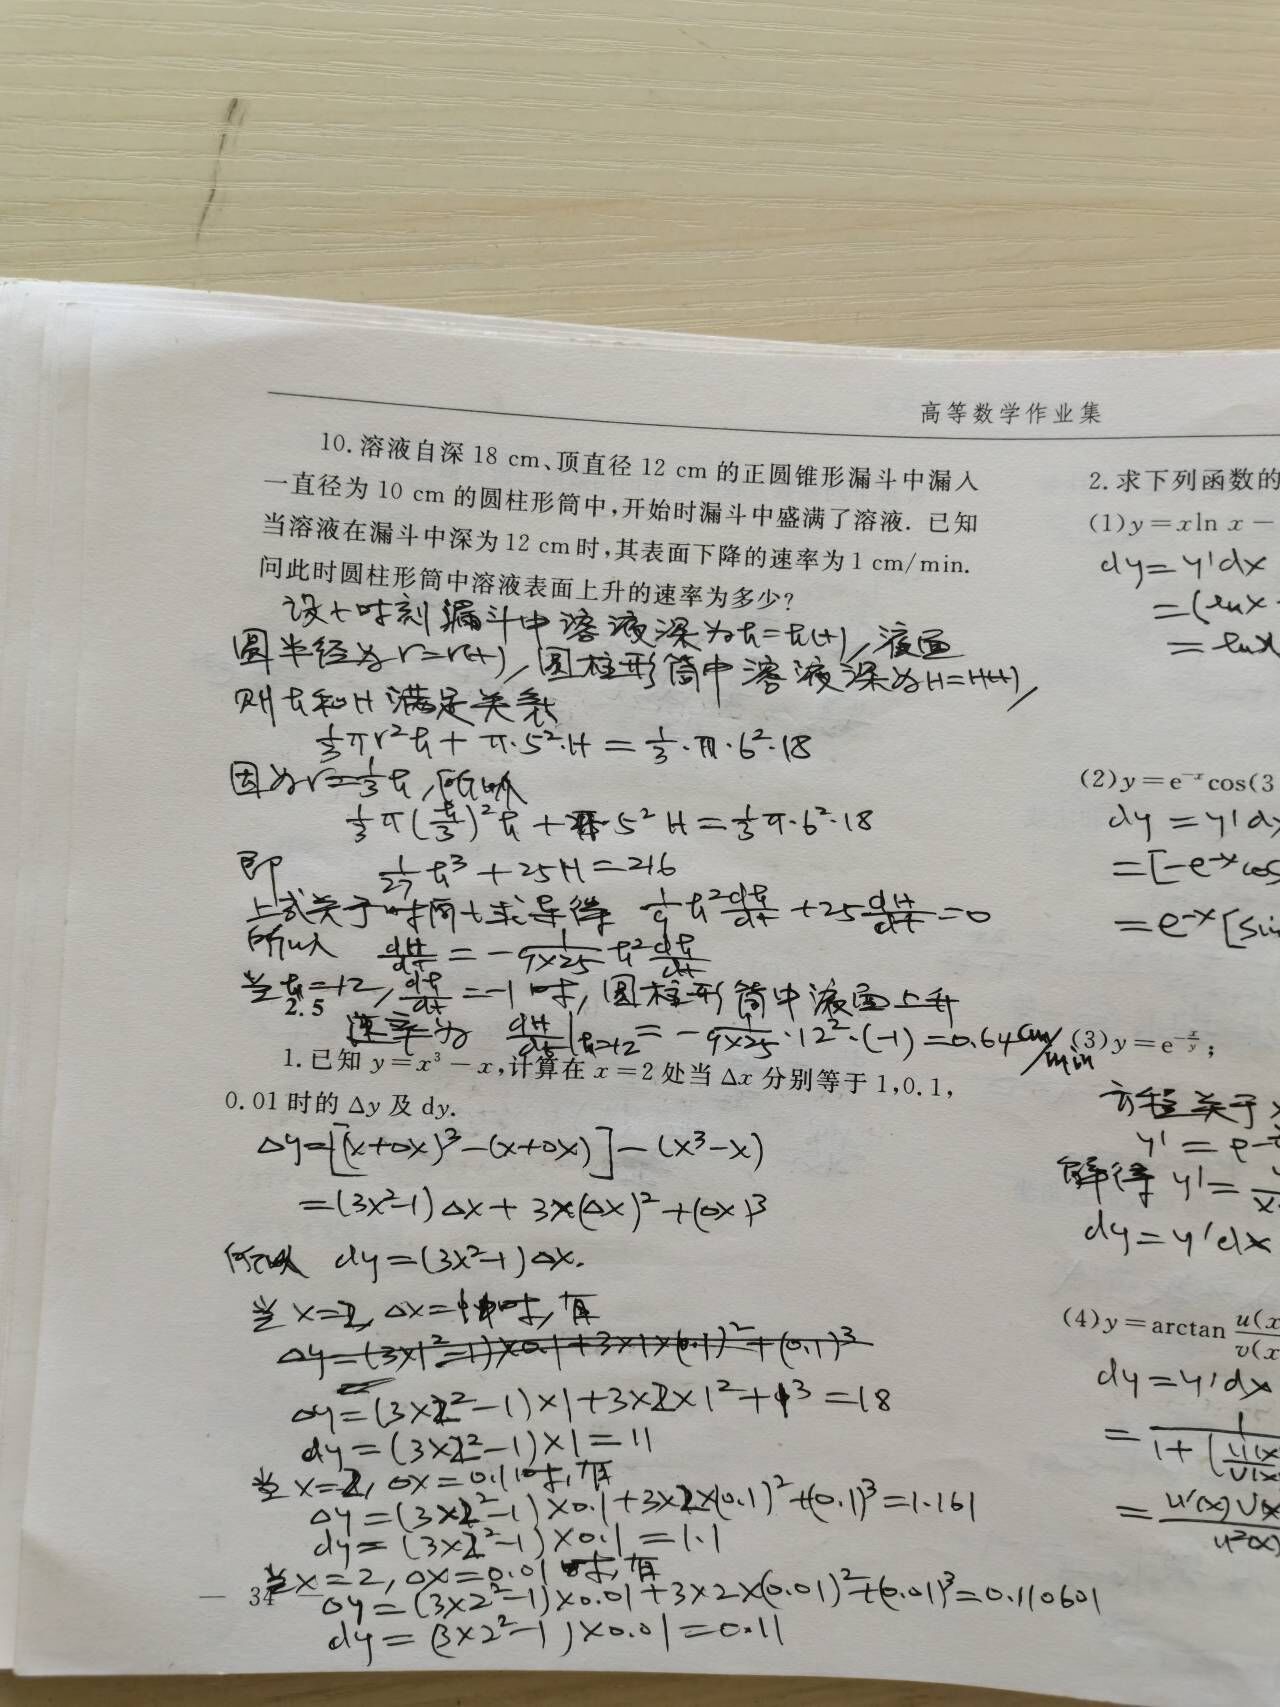 高等数学作业集
10. 溶液自深 18 cm、顶直径 12 cm 的正圆锥形漏斗中漏入
一直径为 10 cm 的圆柱形筒中,开始时漏斗中盛满了溶液. 已知
当溶液在漏斗中深为 12 cm 时,其表面下降的速率为 1 cm/min.
问此时圆柱形筒中溶液表面上升的速率为多少?
设t时刻漏斗中溶液深为h=h(t),液面
圆半径为r=r(t),圆柱形筒中溶液深为H=H(t),
则h和H满足关系
1/3 πr²h + π·5²·H = 1/3·π·6²·18
因为r=1/3 h,所以
1/3 π(h/3)²h + π·5²H = 1/3 π·6²·18
即 1/27 h³ + 25H = 216
上式关于时间t求导得 1/9 h² dh/dt + 25 dH/dt = 0
所以 dH/dt = - 1/(9×25) h² dh/dt
当h=12, dh/dt = -1时,圆柱形筒中液面上升
速率为 dH/dt|h=12 = - 1/(9×25) ·12²·(-1) = 0.64 cm/min
2.5
1. 已知 y=x³-x,计算在 x=2 处当 Δx 分别等于 1,0.1,
0.01 时的 Δy 及 dy.
Δy=[(x+Δx)³-(x+Δx)]-(x³-x)
=(3x²-1)Δx+3x(Δx)²+(Δx)³
所以 dy=(3x²-1)Δx.
当x=2,Δx=1时,有
Δy=(3×1²-1)×0.1+3×1×(0.1)²+(0.1)³
Δy=(3×2²-1)×1+3×2×1²+1³=18
dy=(3×2²-1)×1=11
当x=2,Δx=0.1时,有
Δy=(3×2²-1)×0.1+3×2×(0.1)²+(0.1)³=1.161
dy=(3×2²-1)×0.1=1.1
当x=2,Δx=0.01时,有
Δy=(3×2²-1)×0.01+3×2×(0.01)²+(0.01)³=0.110601
dy=(3×2²-1)×0.01=0.11
— 34
2. 求下列函数的
(1) y=xln x-
dy=y'dx
=(lnx
=lnx
(2) y=e⁻ˣcos(3
dy=y'dx
=[-e⁻ˣcos
=e⁻ˣ[sin
(3) y=e^(-x/y);
方程关于x
y'=e
解得 y'=
dy=y'dx
(4) y=arctan u(x/v(x
dy=y'dx
=1/1+(u(x/v(x
=u'(x)v(x/u²(x)